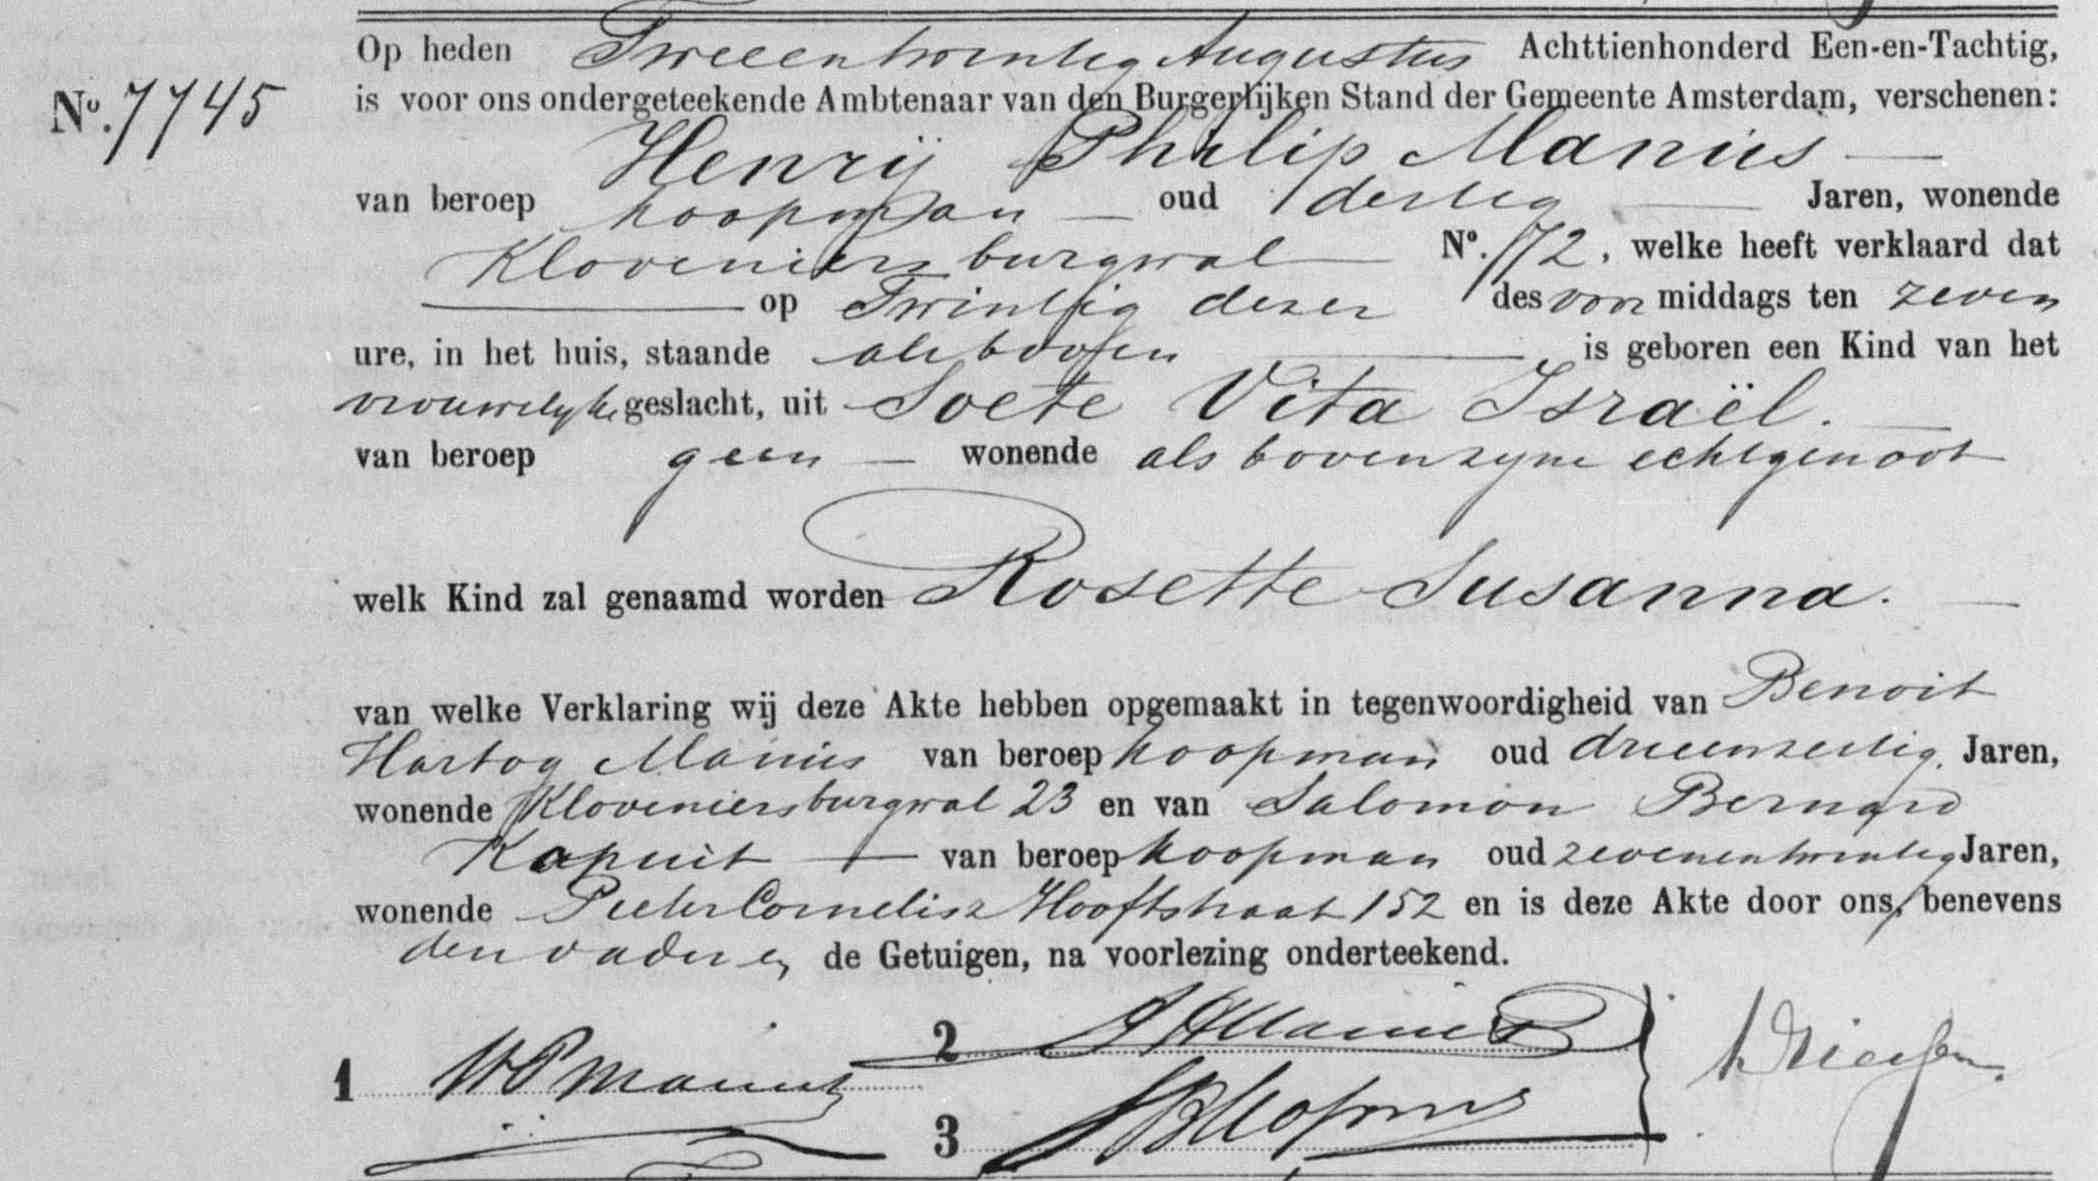 Op heden Tweeentwintig Augustus Achttienhonderd Een-en-Tachtig,
No. 7745
is voor ons ondergeteekende Ambtenaar van den Burgerlijken Stand der Gemeente Amsterdam, verschenen:
Henrij Philip Manus
van beroep koopman oud dertig Jaren, wonende
Kloveniersburgwal No. 72, welke heeft verklaard dat
op Twintig dezer des voor middags ten zeven
ure, in het huis, staande als boven is geboren een Kind van het
vrouwelijke geslacht, uit Soete Vita Israël.
van beroep geen wonende als boven zijne echtgenoot
welk Kind zal genaamd worden Rosette Susanna.
van welke Verklaring wij deze Akte hebben opgemaakt in tegenwoordigheid van Benoit
Hartog Manus van beroep koopman oud drieenzestig Jaren,
wonende Kloveniersburgwal 23 en van Salomon Bernard
van beroep koopman oud zevenentwintig Jaren,
wonende Pieter Cornelisz Hooftstraat 152 en is deze Akte door ons, benevens
den vader en de Getuigen, na voorlezing onderteekend.
1 HPManus
2 Manus
3